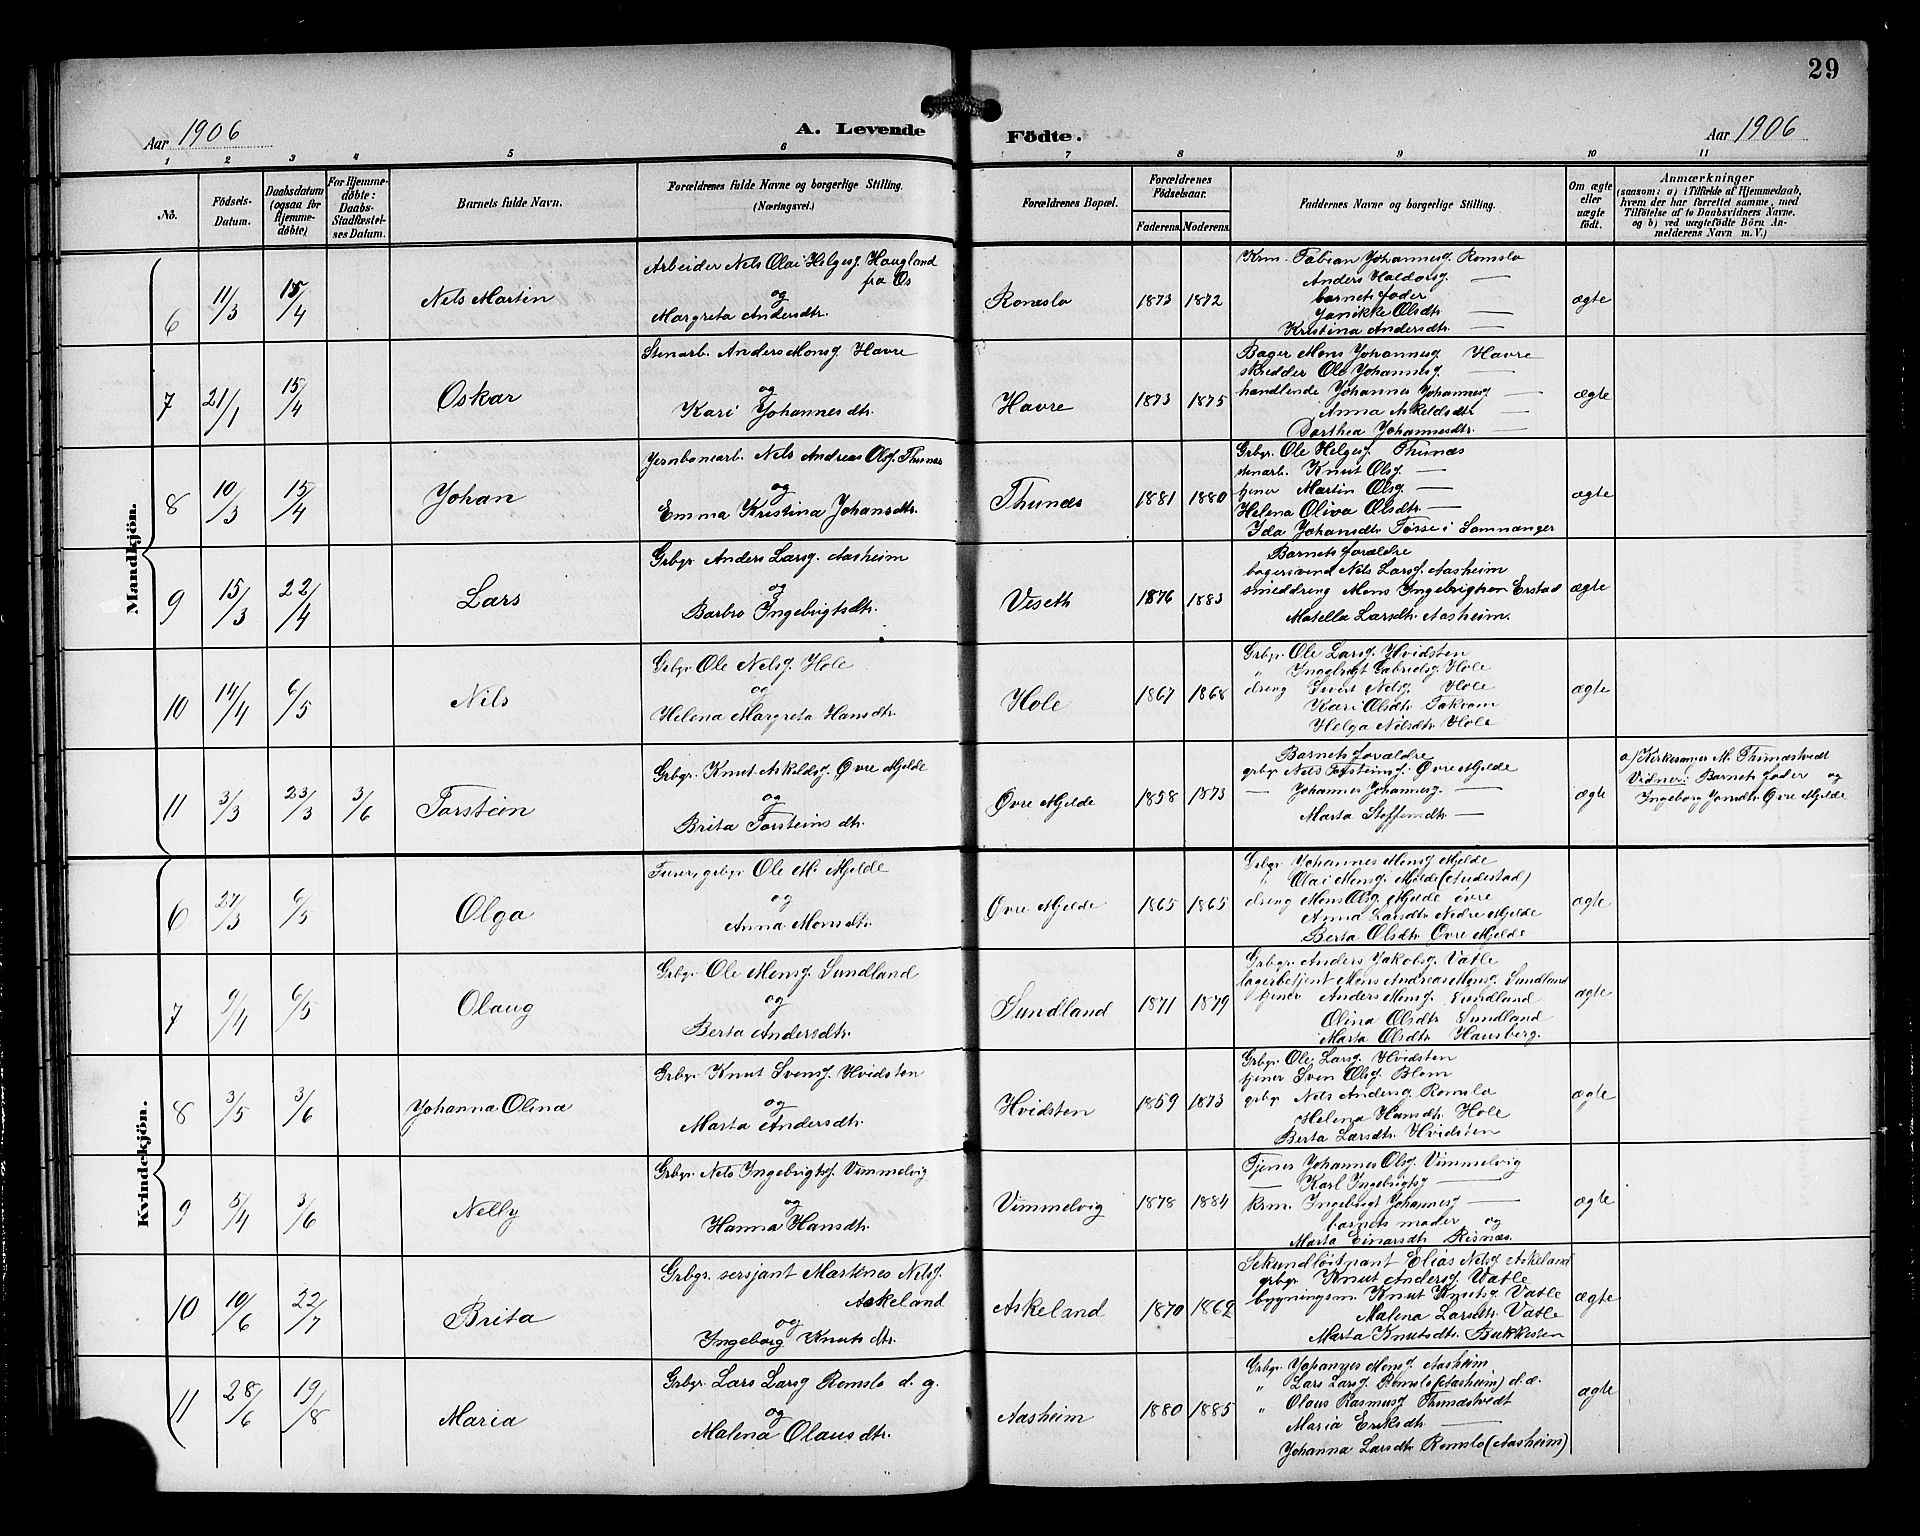 29
Aar 1906
A. Levende
Födte.
Aar 1906
1 2 3 4 5 6 7 8 9 10 11
Nö.
Födsels-
Datum.
Daabsdatum
(ogsaa för
Hjemme-
döbte)
For Hjemme-
döbte:
Daabs-
Stadfæstel-
ses Datum.
Barnets fulde Navn.
Forældrenes fulde Navne og borgerlige Stilling.
(Næringsvei.)
Forældrenes Bopæl.
Forældrenes
Födselsaar.
Faderens. Moderens.
Faddernes Navne og borgerlige Stilling.
Om ægte
eller
uægte
födt.
Anmærkninger
(saasom: a) i Tilfælde af Hjemmedaab,
hvem der har forrettet samme, med
Tilföielse af to Daabsvidners Navne,
og b) ved uægtefödte Börn An-
melderens Navn m. V.)
Mandkjön.
6 11/3 15/4 Nels Martin
Arbeider Nels Olai Helgesg. Haugland
fra Os
og
Margreta Andersdtr.
Romslo 1873 1872
Krm. Fabian Johannesg. Romslo
Anders Haldorsg —
barnets fader
Janikke Olsdtr. —
Kristina Andersdtr. —
ægte
7 21/1 15/4 Oskar
Stenarb. Anders Monsg. Havre
og
Kari Johannesdtr.
Havre 1873 1875
Bager Mons Johannesg Havre
skredder Ole Johannesg. —
handlende Johannes Johannesg. —
Anna Askeldsdtr —
Dorthea Johannesdtr. —
ægte
8 10/3 15/4 Johan
Jernbanearb. Nels Andreas Olsg. Thunæs
og
Emma Kristina Johansdtr.
Thunæs 1881 1880
Grbgr. Ole Helgesg. Thunæs
stenarb. Knut Olsg. —
tjener Martin Olsg. —
Helena Oliva Olsdtr. —
Ida Johansdtr. Tøsse i Samnanger
ægte
9 15/3 22/4 Lars
Grbgr. Anders Larsg. Aasheim
og
Barbro Ingebrigtsdtr.
Veseth 1876 1883
Barnets forældre
bagersvend Nels Larsg. Aasheim
smeddreng Mons Ingebrigtsen Erstad
Matella Larsdtr. Aasheim.
ægte
10 14/4 6/5 Nils
Grbgr. Ole Nelsg. Hole
og
Helena Margreta Hansdtr.
Hole 1867 1868
Grbgr. Ole Larsg. Hvidsten
" Ingebrigt Gabrielsg. Hole
dreng Sivert Nelsg. Hole
Kari Olsdtr. Takvam
Helga Nilsdtr. Hole
ægte
11 3/3 23/3 3/6 Torstein
Grbgr. Knut Askeldsg. Øvre Mjelde
og
Brita Torsteinsdtr.
Øvre Mjelde 1858 1873
Barnets forældre
grbgr. Nels Torsteinsg. Øvre Mjelde
— Johannes Johannesg. —
Marta Steffensdtr. —
ægte
a/ Kirkesanger M. Thunæstvedt
Vidner: Barnets fader og
Ingeborg Jonsdtr. Øvre Mjelde
Kvindekjön.
6 27/3 6/5 Olga
Furer, grbgr. Ole M. Mjelde
og
Anna Monsdtr.
Øvre Mjelde 1865 1865
Grbgr Johannes Monsg Mjelde
" Olai Monsg. Mjelde
dreng Mons Olsg Mjelde øvre
Anna Larsdtr. Nedre Mjelde
Berta Olsdtr. Øvre Mjelde
ægte
7 9/4 6/5 Olaug
Grbgr. Ole Monsg. Sundland
og
Berta Andersdtr.
Sundland 1871 1879
Grbgr. Anders Jakobsg. Vatle
lagerbetjent Mons Andreas Monsg. Sundland
tjener Anders Monsg. Sundland
Olina Olsdtr. Sundland
Marta Olsdtr. Hausberg.
ægte
8 3/5 3/6 Johanna Olina
Grbgr. Knut Svensg. Hvidsten
og
Marta Andersdtr.
Hvidsten 1869 1873
Grbgr. Ole Larsg. Hvidsten
tjener Sven Olsg. Blom
grbgr. Nils Andersg. Romslo
Helena Hansdtr. Hole
Berta Larsdtr. Hvidsten
ægte
9 5/4 3/6 Nelly
Grbgr. Nels Ingebrigtsg. Vimmelvig
og
Hanna Hansdtr.
Vimmelvig 1878 1884
Tjener Johannes Olsg. Vimmelvig
— Karl Ingebrigtsg —
krm. Ingebrigt Johannesg —
barnets moder og
Marta Einarsdtr. Risnæs.
ægte
10 10/6 22/7 Brita
Grbgr. sersjant Martines Nelsg.
Askeland
og
Ingeborg Knutsdtr.
Askeland 1870 1862
Sekundløitnant Elias Nelsg Askeland
grbgr. Knut Andersg. Vatle
bygningsm. Knut Knutsg. Vatle
Malena Larsdtr. Vatle
Marta Knutsdtr. Bukkesten
ægte
11 28/6 19/8 Maria
Grbgr. Lars Larsg Romslo d. y.
og
Malena Olausdtr.
Aasheim 1880 1885
Grbgr. Johannes Monsg. Aasheim
" Lars Larsg. Romslo (Aasheim) d. æ.
" Olaus Rasmusg Thunæstvedt
Maria Eriksdtr. —
Johanna Larsdtr. Romslo (Aasheim)
ægte